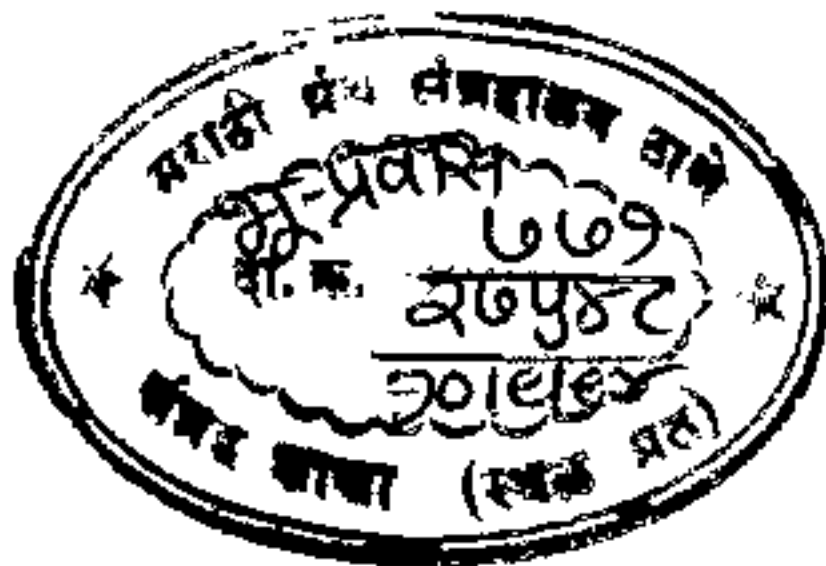 मराठी ग्रंथ संग्रहालय ठाणे
भू-प्रवास
७७१
वी. क्र. २७५४८
२०।९।९४
संग्रह शाखा (स्थळ प्रत)